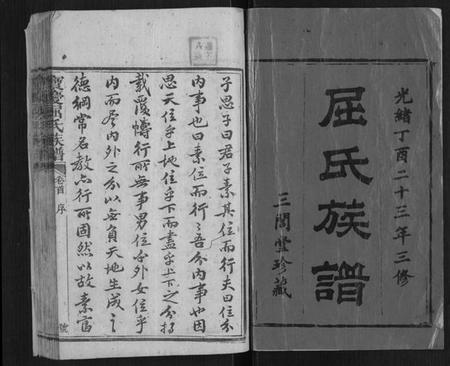 光緒丁酉二十三年三修
屈氏族譜
三閭堂珍藏
子思子曰君子素其位而行夫曰位分
內事也曰素位而行行吾分內事也因
思天位乎上地位乎下而盡乎上下之分持
載覆幬行所無事男位乎外女位乎
內而盡內外之分以無負天地生成之
德綱常名教六行所固然以故素富
寶慶屈氏族譜
卷首
序
號